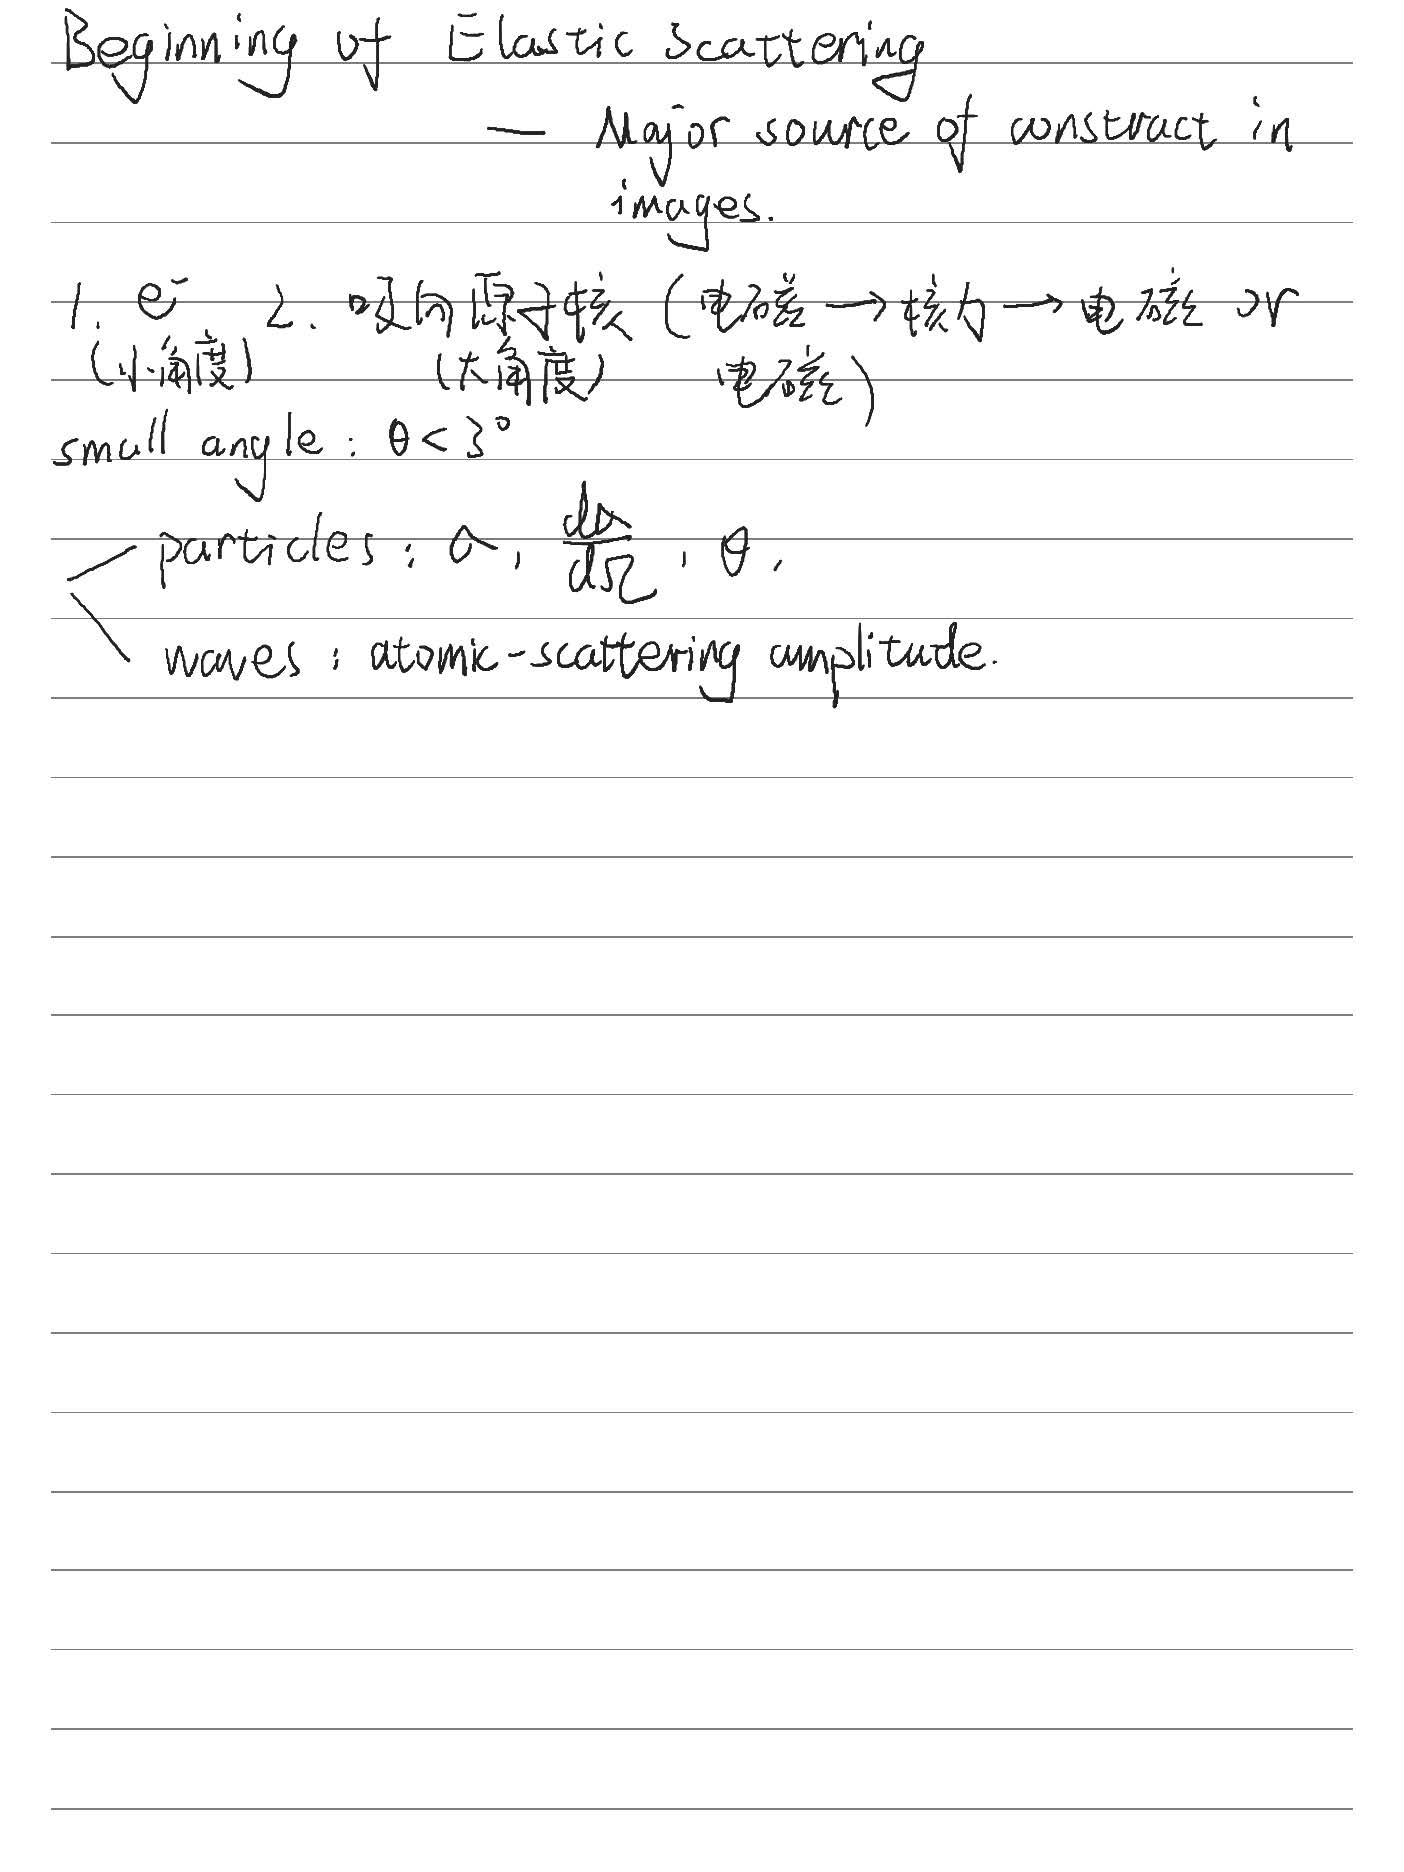 Beginning of Elastic Scattering
— Major source of constract in
images.
1. e⁻ 2. 吸向原子核 (电磁 → 核力 → 电磁 or
(小角度) (大角度) 电磁)
small angle: θ < 3°
particles: σ, dσ/dΩ, θ,
waves: atomic-scattering amplitude.